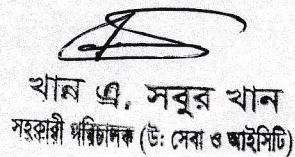 খান এ. সবুর খান
সহকারী পরিচালক (উ: সেবা ও আইসিটি)